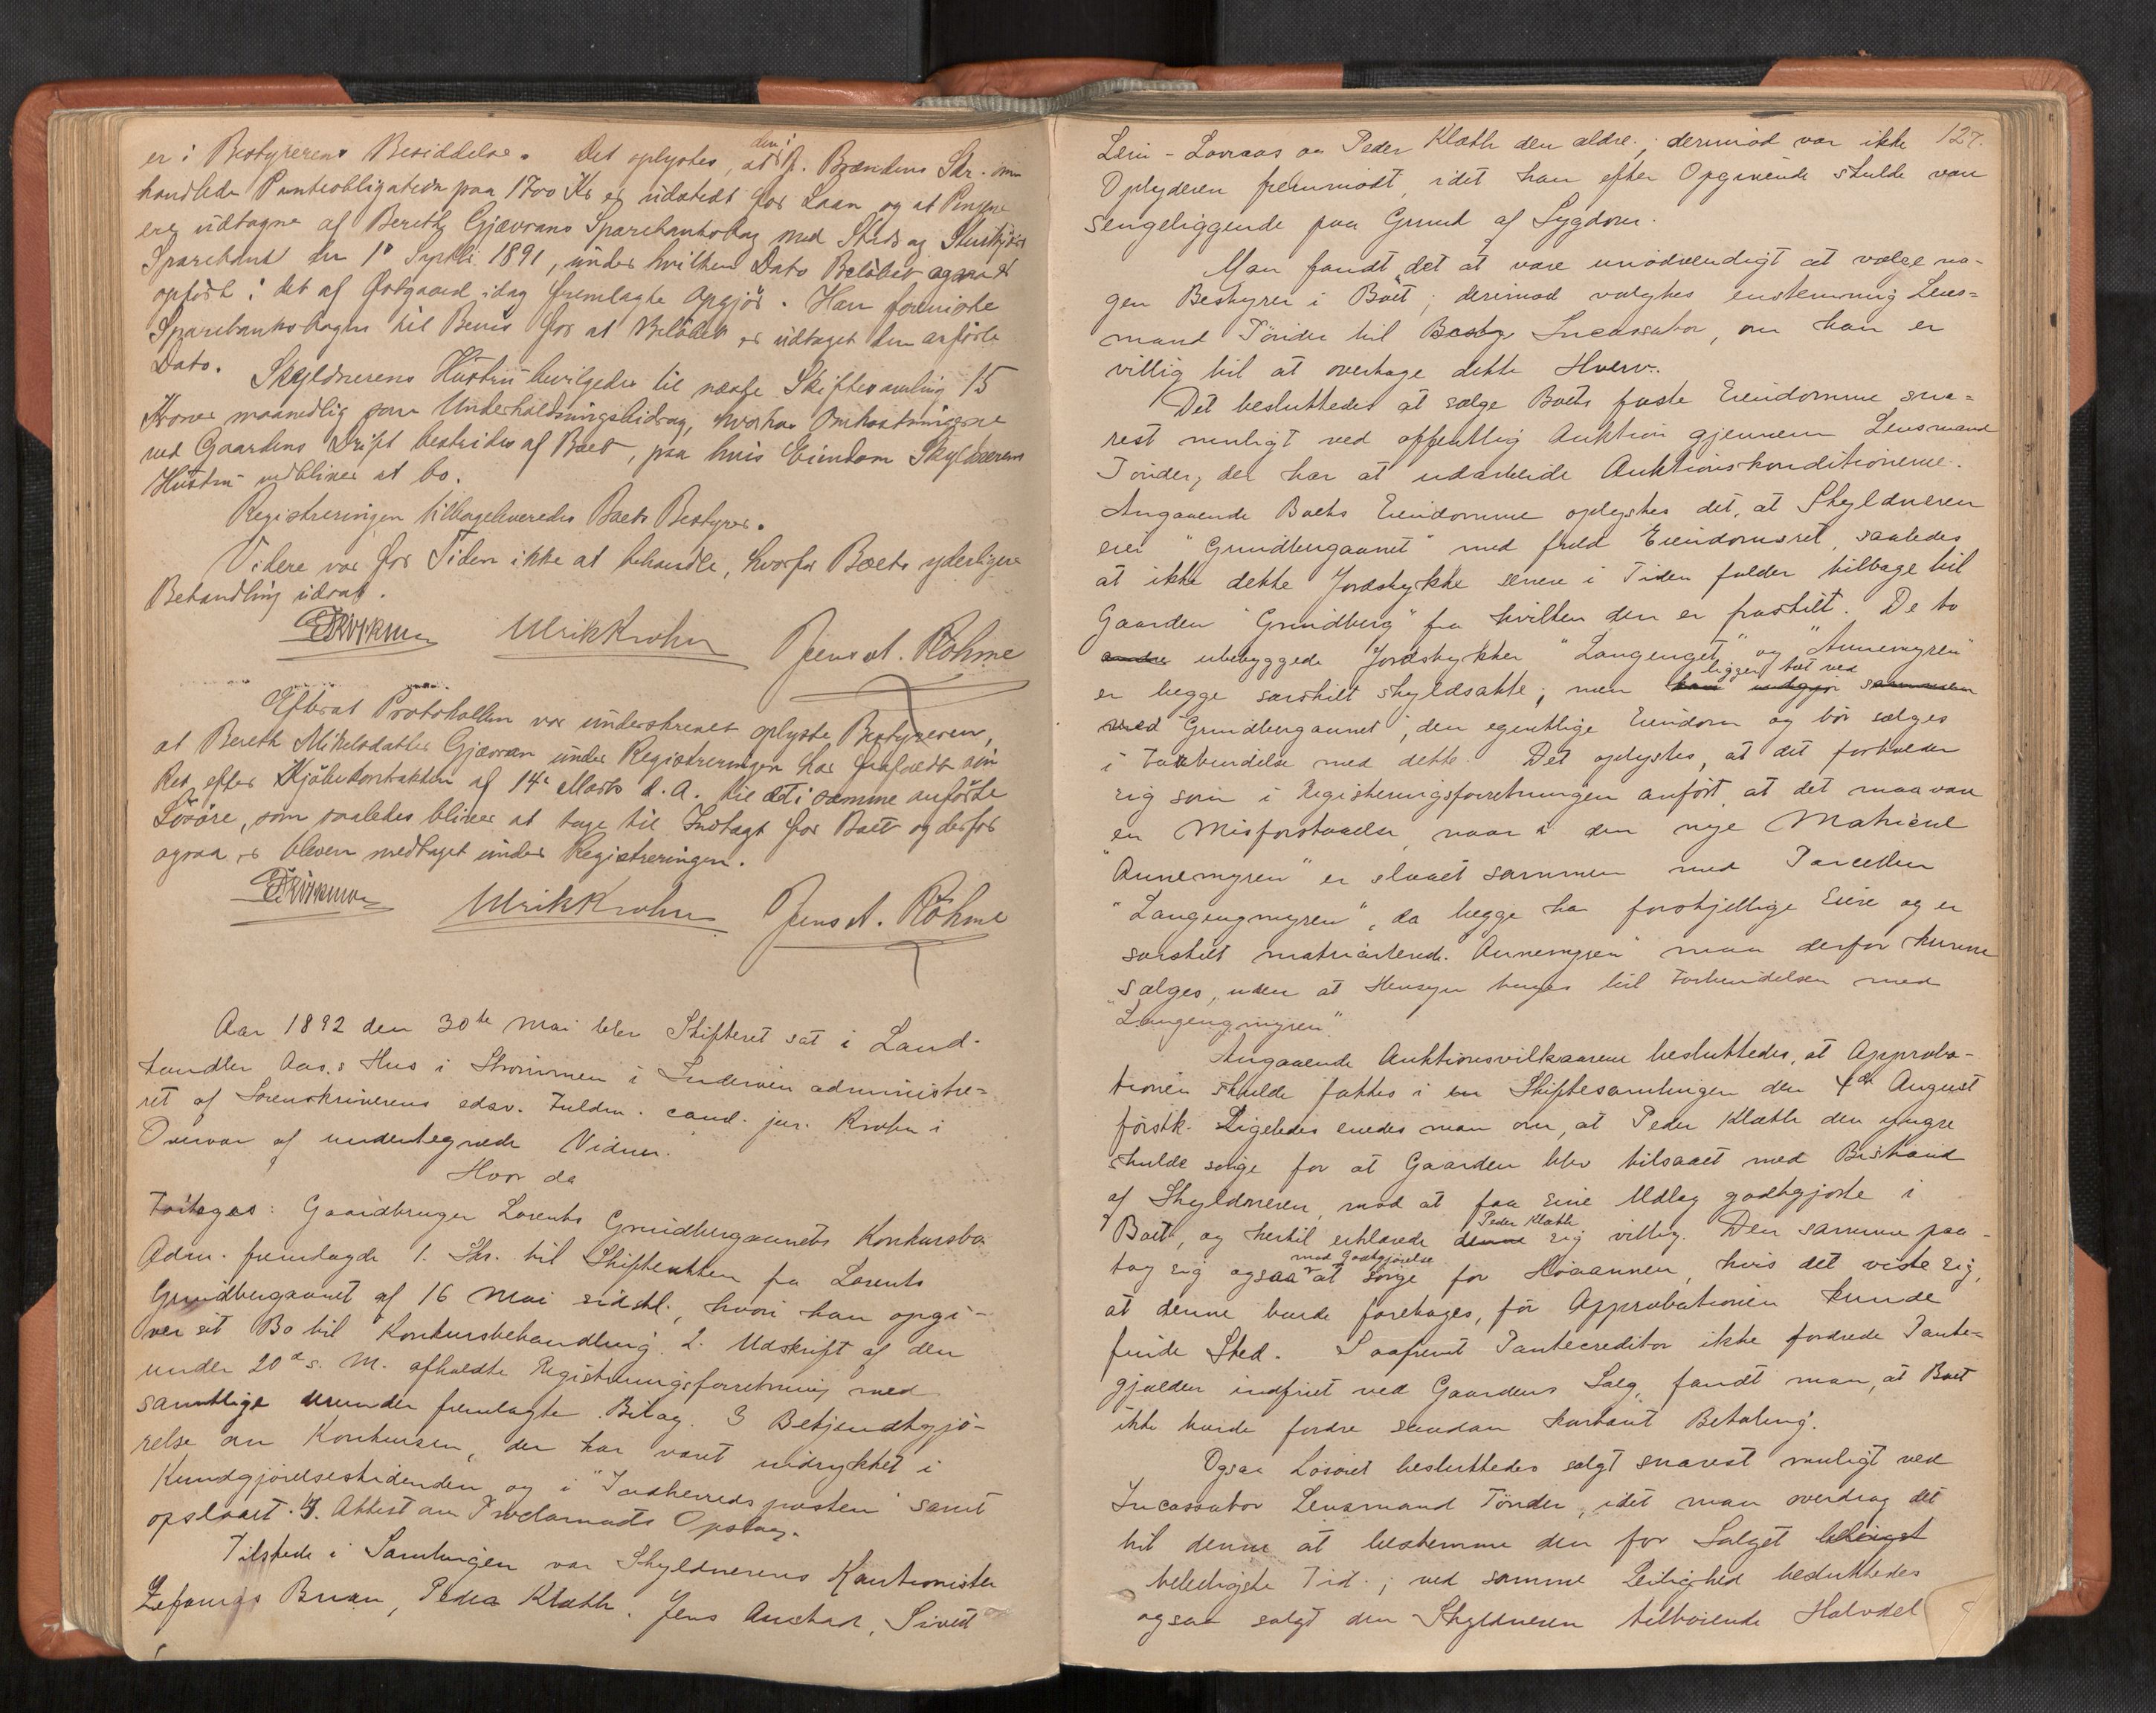 er i Bestyrerens Besiddelse. Det oplystes, at den i Brændens Skr. om
handlede Panteobligation paa 1700 Kr er udstedt for Laan og at Pengene
ere udtagne af Bereth Gjævrans Sparebanksbog med Stods og Stenkjærs
Sparebank den 1ste Septbr. 1891, under hvilken Dato Beløbet ogsaa er
opført i det af Østgaard idag fremlagte Opgjør. Han foreviste
Sparebanksbogen til Bevis for at Beløbet er udtaget den anførte
Dato. Skyldnerens Hustru bevilgedes til næste Skiftesamling 15
Kroner maanedlig som Underholdningsbidrag, hvorhos Omkostningerne
ved Gaardens Drift bestrides af Boet, paa hvis Eiendom Skyldnerens
Hustru vedbliver at bo.
Registreringen tilbageleveredes Boets Bestyrer.
Videre var for Tiden ikke at behandle, hvorfor Boets yderligere
Behandling udsat.
Ulrik Krohn Jens A. Röhme
Efterat Protokollen var underskrevet oplyste Bestyreren,
at Bereth Mikelsdatter Gjævran under Registreringen har frafaldt sin
Ret efter Kjøbekontrakten af 14de Marts d. A. til det i samme anførte
Løsøre, som saaledes bliver at tage til Indtægt for Boet og derfor
ogsaa er bleven medtaget under Registreringen.
Ulrik Krohn Jens A. Röhme
Aar 1892 den 30te Mai blev Skifteret sat i Land-
handler Aas's Hus i Strømmen i Inderøen administre=
ret af Sorenskriverens edsv. Fuldm. cand. jur. Krohn i
Overvær af undertegnede Vidner.
Hvor da
Foretages: Gaardbruger Lorents Grundbergaunets Konkursbo
Adm. fremlagde 1. Skr. til Skifteretten fra Lorents
Grundbergaunet af 16 Mai sidstl., hvori han opgi-
ver sit Bo til Konkursbehandling. 2. Udskrift af den
under 20de s. M. afholdte Registreringsforretning med
samtlige derunder fremlagte Bilag. 3 Bekjendtgjø-
relse om Konkursen, der har været indrykket i
Kundgjørelsestidenden og i "Indherredsposten" samt
opslaaet. 4. Attest om Proclamaets Opslag.
Tilstede i Samlingen var Skyldnerens Kautionister
Zefanias Bruan, Peder Klæth. Jens Austad, Sivert
127.
Lein-Lovraas og Peder Klæth den ældre; derimod var ikke
Opbyderen fremmødt, idet han efter Opgivende skulde være
sengeliggende paa Grund af Sygdom.
Man fandt det at være unødvendigt at vælge no-
gen Bestyrer i Boet; derimod valgtes enstemmig Lens=
mand Tønder til Besty Incassator, om han er
villig til at overtage dette Hverv.
Det besluttedes at sælge Boets faste Eiendomme sna=
rest muligt ved offentlig Auktion gjennem Lensmand
Tønder, der har at udarbeide Auktionskonditionerne.
Angaaende Boets Eiendomme oplystes det, at Skyldneren
eier "Grundbergaunet" med fuld Eiendomsret, saaledes
at ikke dette Jordstykke senere i Tiden falder tilbage til
Gaarden "Grundberg" fra hvilken den er fraskilt. De to
andre ubebyggede Jordstykker "Langenget" og "Aunemyren"
er begge særskilt skyldsatte; men ligger tæt ved
med Grundbergaunet, den egentlige Eiendom og bør sælges
i Forbindelse med dette. Det oplystes, at det forholder
sig som i Registreringsforretningen anført, at det maa være
en Misforstaaelse naar i den nye Matricul
"Aunemyren" er slaaet sammen med Parcellen
"Langengmyren", da begge har forskjellige Eiere og er
særskilt matriculerede. Aunemyren maa derfor kunne
sælges, uden at Hensyn tages til Forbindelsen med
"Langengmyren".
Angaaende Auktionsvilkaarene besluttedes, at Approba-
tionen skulde fattes i en Skiftesamlingen den 4de August
førstk. Ligeledes enedes man om, at Peder Klæth den yngre
skulde sørge for at Gaarden blev tilsaaet med Bistand
af Skyldneren, mod at faa sine Udlæg godtgjorte i
Boet, og hertil erklærede denne Peder Klæth sig villig. Den samme paa-
tog sig ogsaa mod Godtgjørelse at sørge for Høaannen, hvis det viste sig,
at denne burde foretages, før Approbationen kunde
finde Sted. Saafremt Pantecreditor ikke fordrede Pante=
gjælden indfriet ved Gaardens Salg, fandt man, at Boet
ikke burde fordre saadan kontant Betaling.
Ogsaa Løsøret besluttedes solgt snarest muligt ved
Incassator Lensmand Tønder, idet man overdrog det
til denne at bestemme den for Salget beleiligst
beleiligste Tid.; ved samme Leilighed besluttedes
ogsaa solgt den Skyldneren tilhørende Halvdel